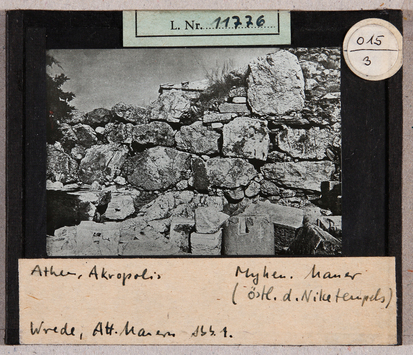 L. Nr. 11776
015
3
Athen, Akropolis Myken. Mauer
(östl. d. Niketempels)
Wrede, Att. Mauern Abb. 1.